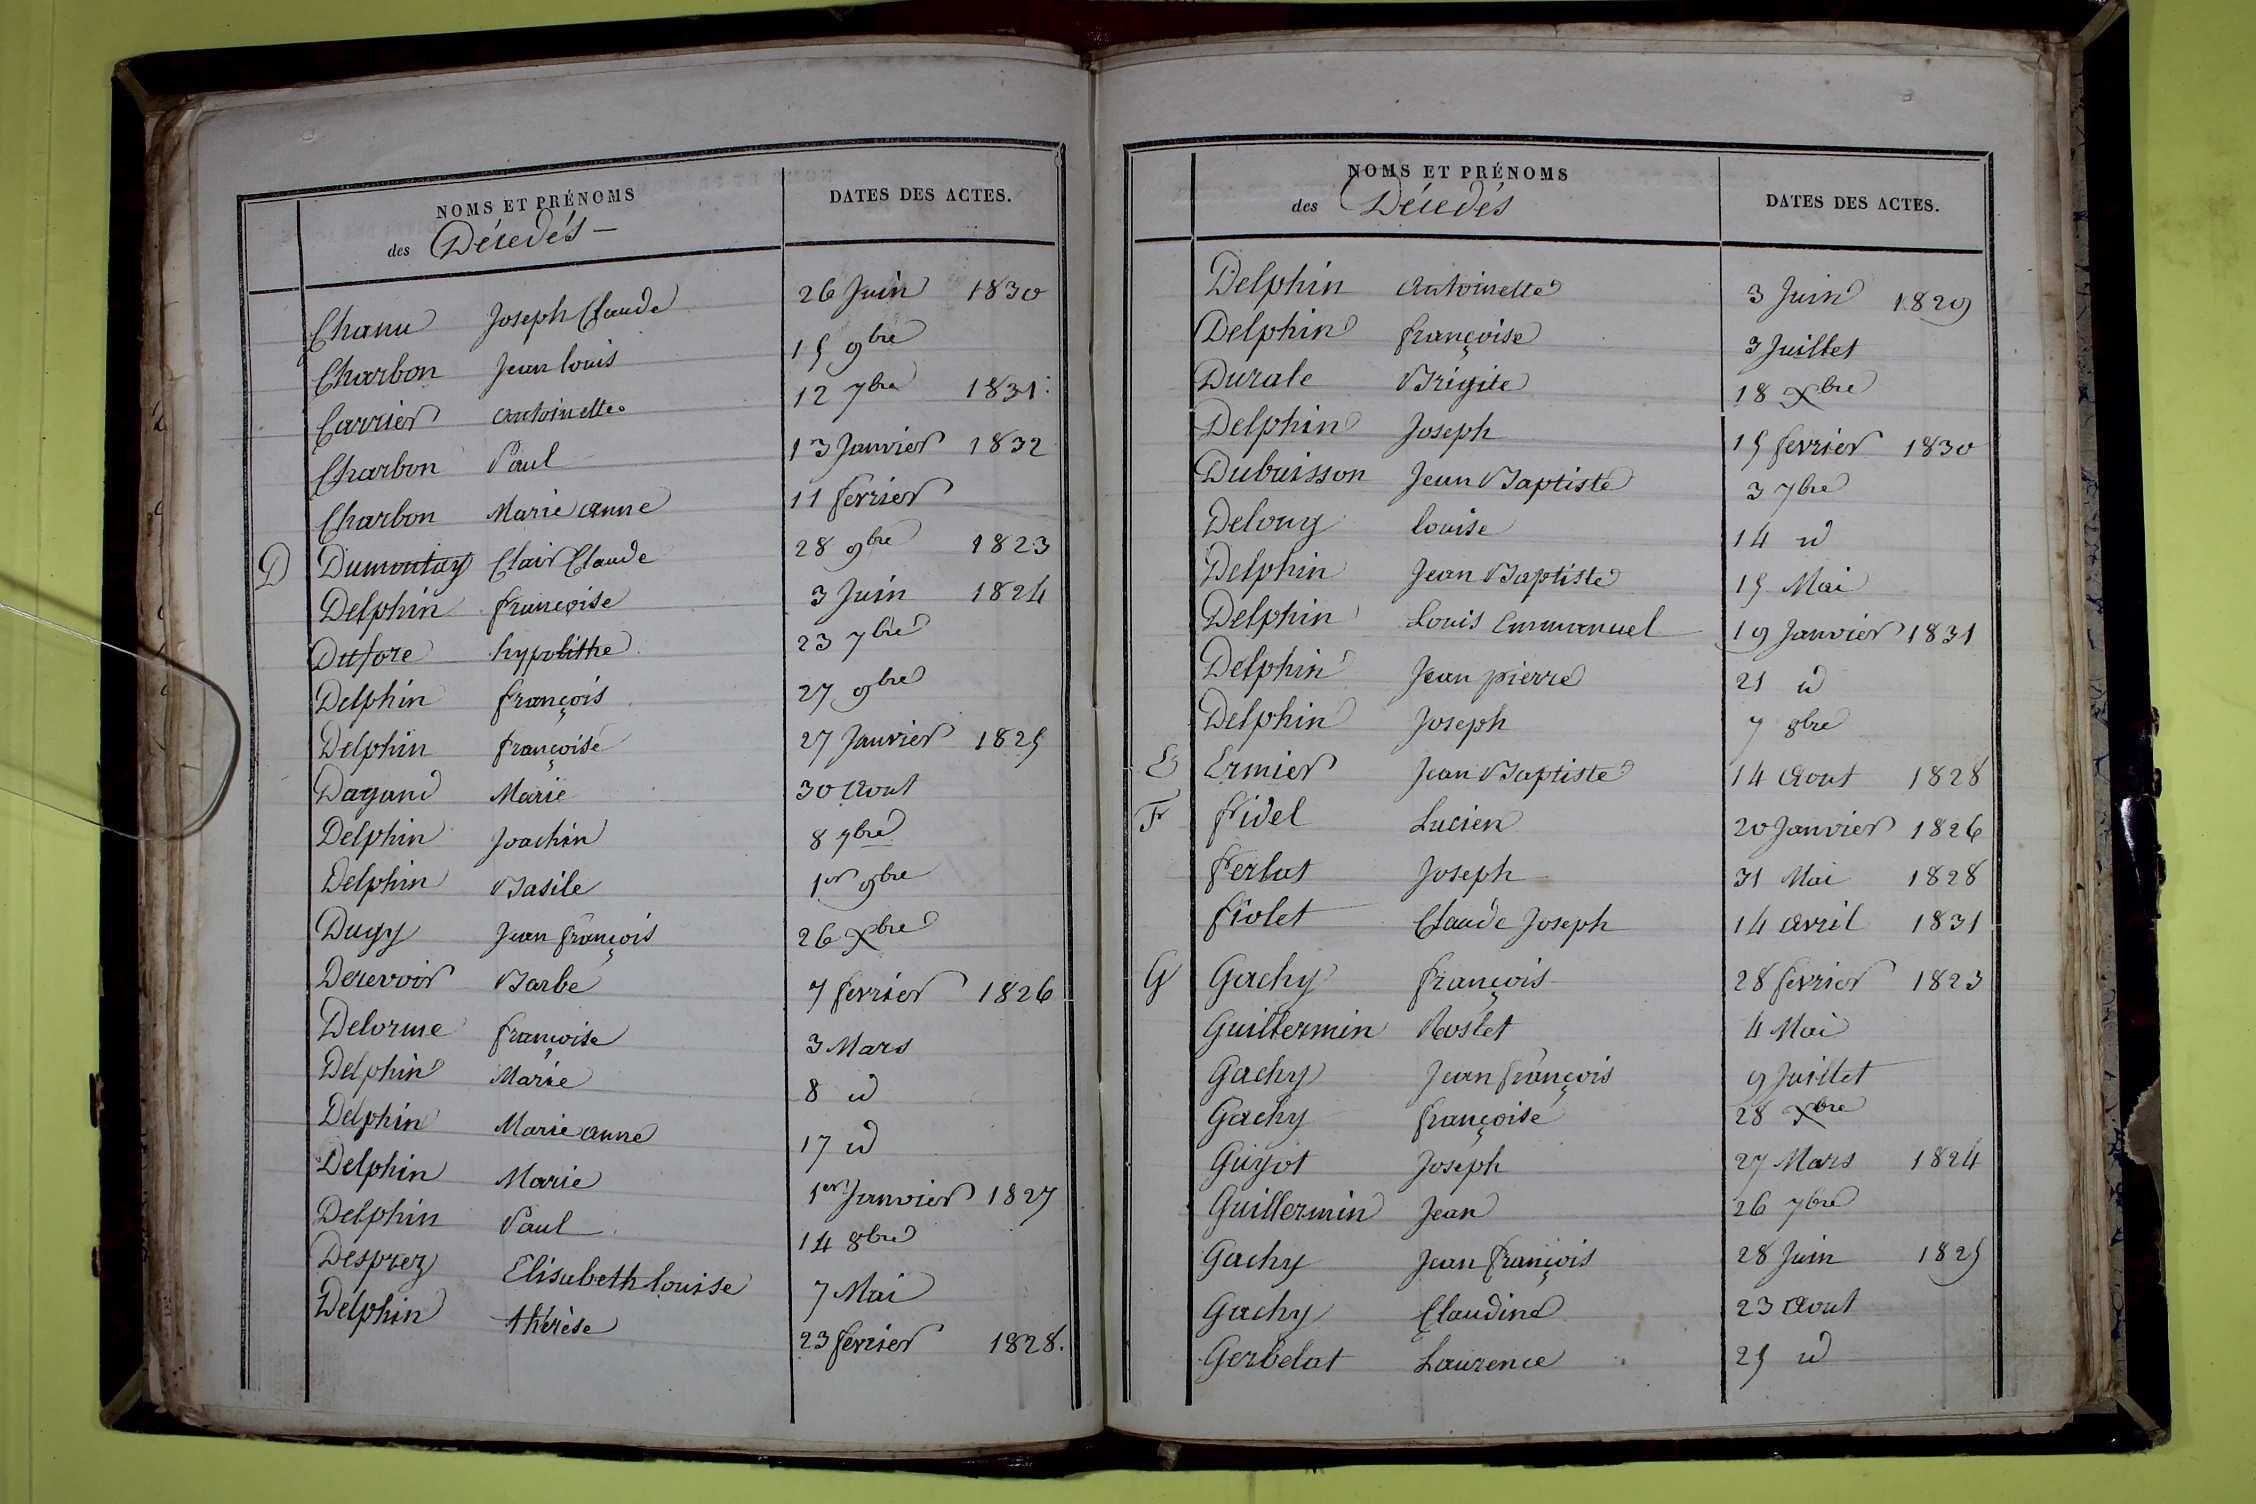 NOMS ET PRÉNOMS DATES DES ACTES.
des Décedés —
Chanu Joseph Claude 26 Juin 1830
Charbon Jean louis 15 9bre
Carrier Antoinette 12 7bre 1831
Charbon Paul 13 Janvier 1832
Charbon Marie anne 11 fevrier
D Dumontay Clair Claude 28 9bre 1823
Delphin françoise 3 Juin 1824
Dufore hypolithe 23 7bre
Delphin françois 27 9bre
Delphin françoise 27 Janvier 1825
Dagand Marie 30 Aout
Delphin Joachin 8 7bre
Delphin Basile 1er 9bre
Dugy Jean françois 26 Xbre
Derevoir Barbe 7 fevrier 1826
Delorme françoise 3 Mars
Delphin Marie 8 id
Delphin Marie anne 17 id
Delphin Marie 1er Janvier 1827
Delphin Paul 14 8bre
Desprez Elisabeth louise 7 Mai
Delphin thérèse 23 fevrier 1828.
NOMS ET PRÉNOMS DATES DES ACTES.
des Décedés
Delphin Antoinette 3 Juin 1829
Delphin françoise 3 Juillet
Durale Brigite 18 Xbre
Delphin Joseph 15 fevrier 1830
Dubuisson Jean Baptiste 3 7bre
Delouy louise 14 id
Delphin Jean Baptiste 15 Mai
Delphin Louis Emmanuel 19 Janvier 1831
Delphin Jean pierre 21 id
Delphin Joseph 7 8bre
E Ermier Jean Baptiste 14 Aout 1828
F fidel Lucien 20 Janvier 1826
ferlat Joseph 31 Mai 1828
fiolet Claude Joseph 14 avril 1831
G Gachy françois 28 fevrier 1823
Guillermin Roslet 4 Mai
Gachy Jean françois 9 Juillet
Gachy françoise 28 Xbre
Guyot Joseph 27 Mars 1824
Guillermin Jean 26 7bre
Gachy Jean françois 28 Juin 1825
Gachy Claudine 23 Aout
Gerbelat Laurence 25 id